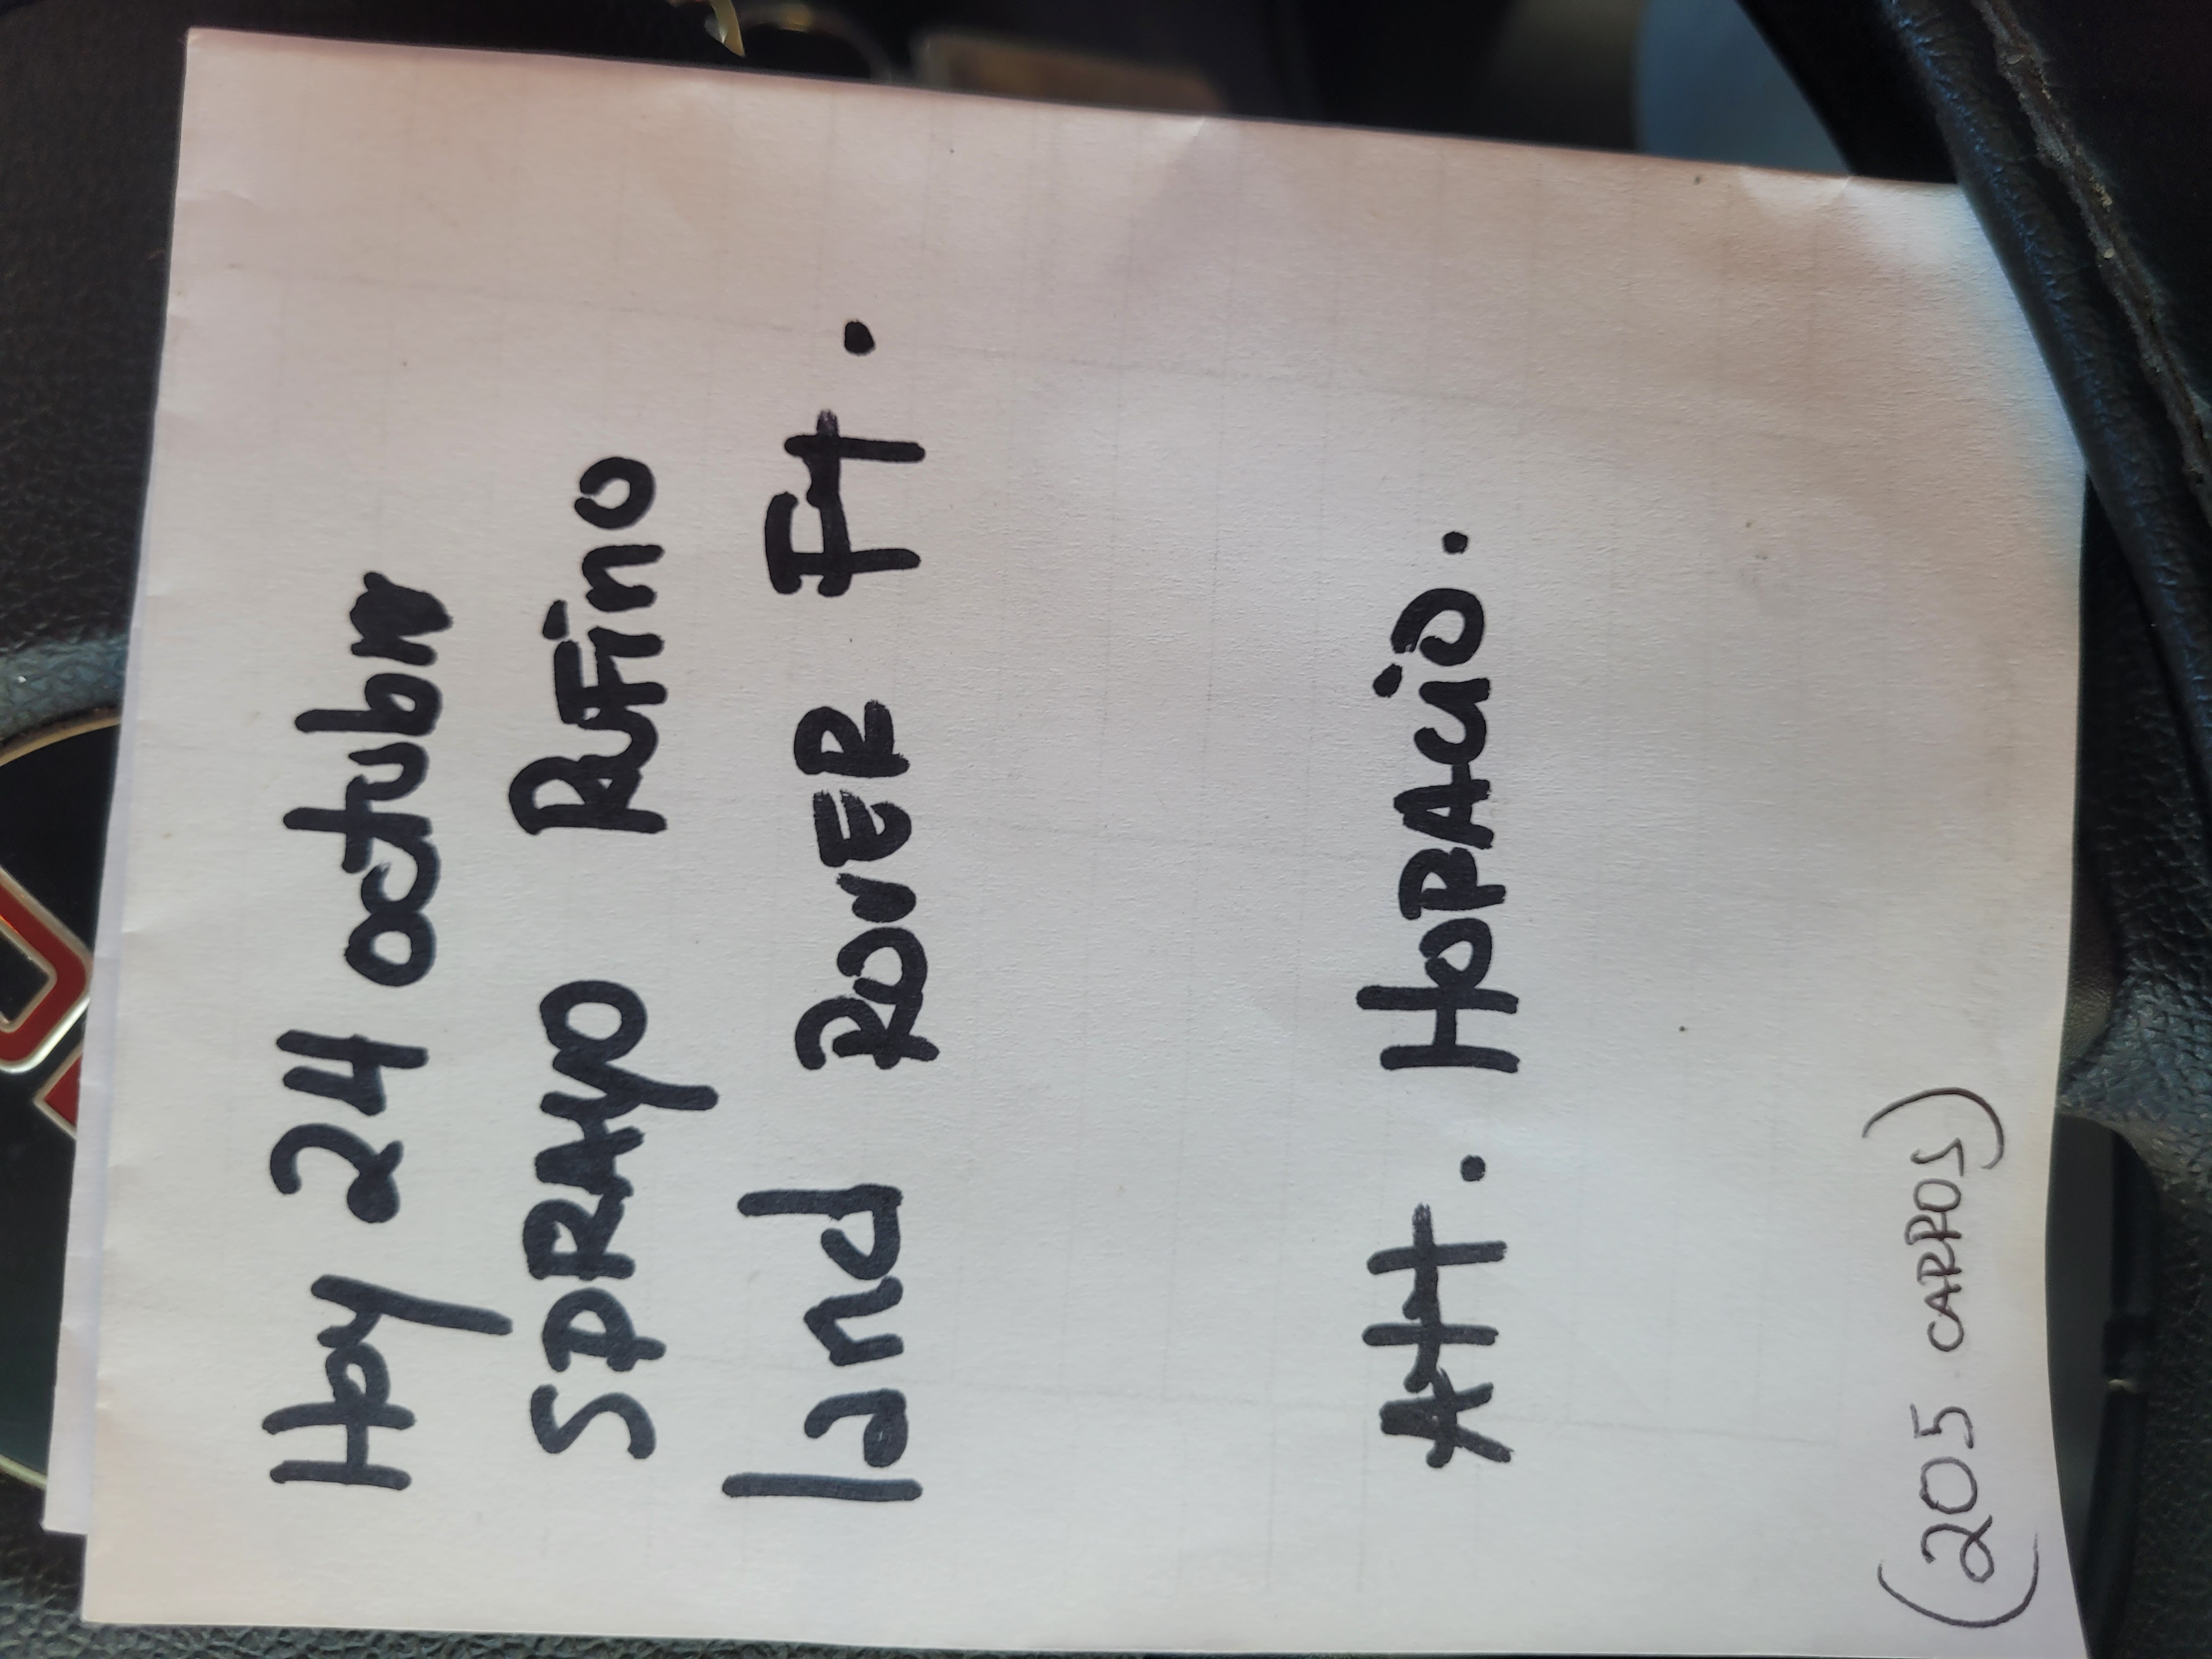 Hoy 24 octubre
SPRAyo RuFino
land RovER Ft.
Att. HoRAcio.
(205 CARROS)